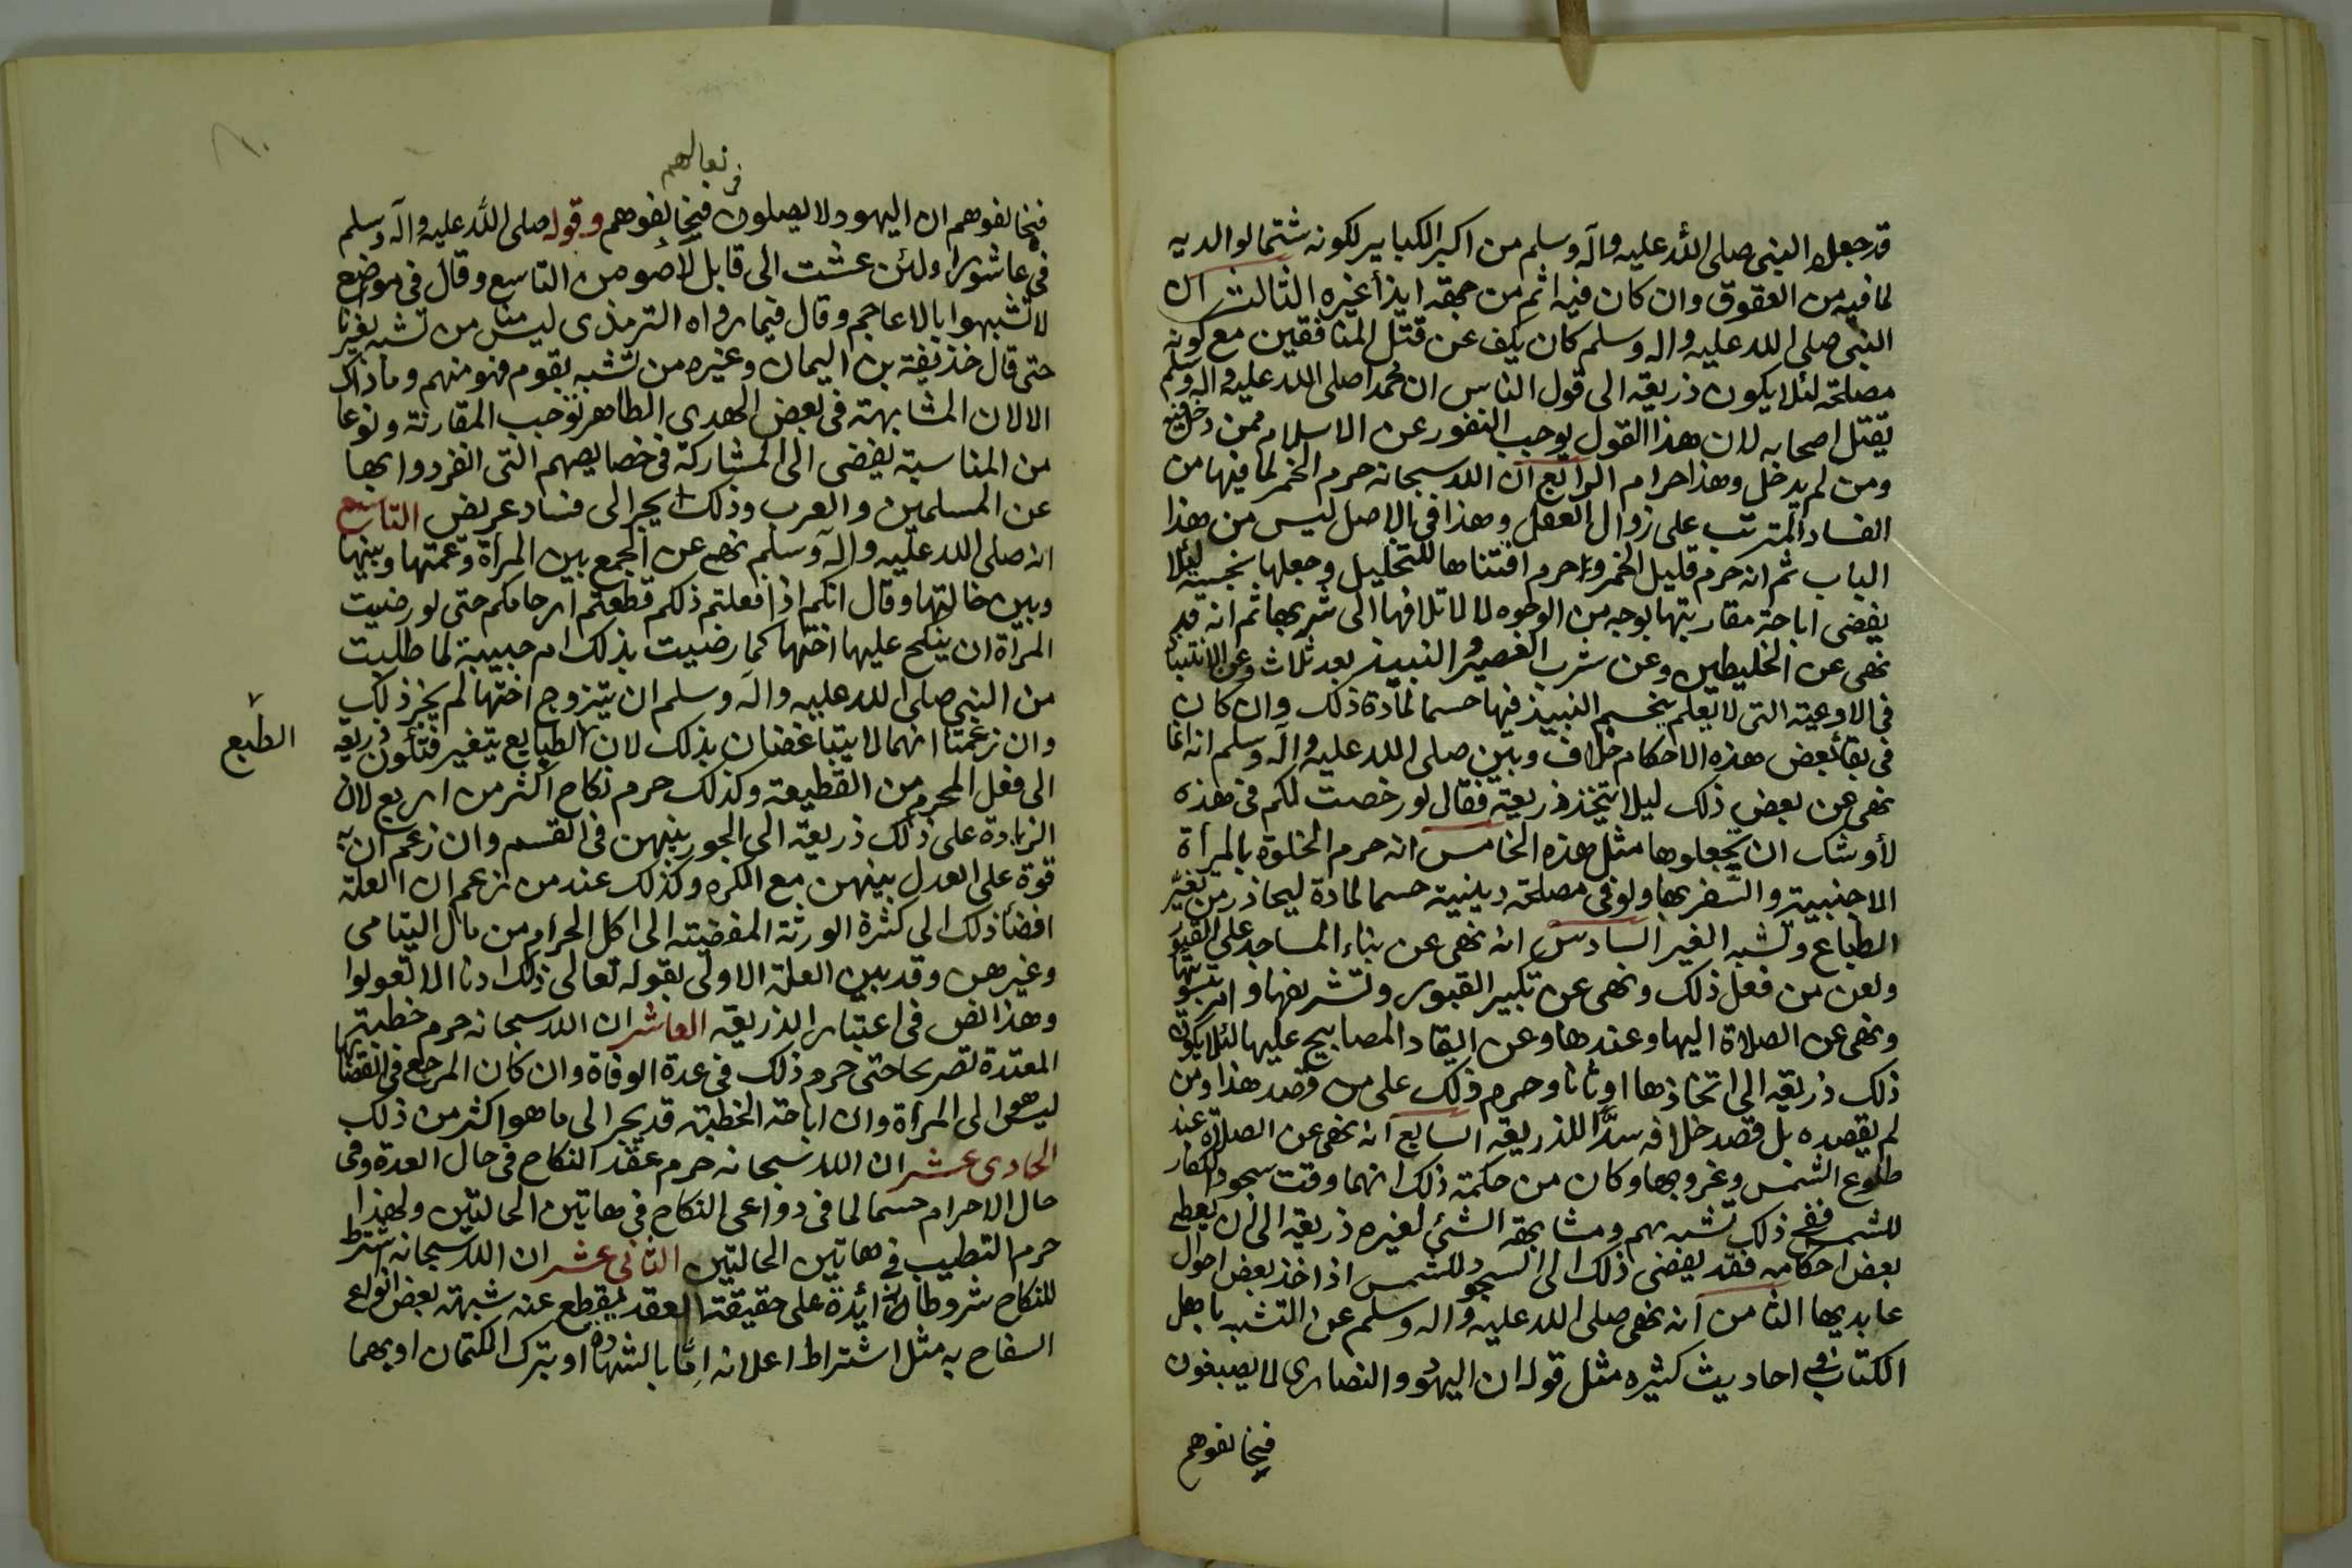 قد جعله النبى صلى الله عليه وآله وسلم من اكبر الكبايير لكونه شتما لوالديه
لما فيه من العقوق وان كان فيه اثم من جهة ايذأ غيره الثالث ان
النبى صلى الله عليه واله وسلم كان يكف عن قتل المنافقين مع كونه
مصلحة لئلا يكون ذريعة الى قول الناس ان محمدا صلى الله عليه واله وسلم
يقتل اصحابه لان هذا القول يوجب النفور عن الاسلام ممن دخل فيه
ومن لم يدخل وهذا حرام الرابع ان الله سبحانه حرم الخمر لما فيها من
الفساد المترتب على زوال العقل وهذا فى الاصل ليس من هذا
الباب ثم انه حرم قليل الخمر وحرم اقتناها للتخليل وجعلها نجسة ليلا
يفضى اباحة مقاربتها بوجه من الوجوه لا لاتلافها الى شربها ثم انه قد
نهى عن الخليطين وعن شرب العصير والنبيذ بعد ثلاث وعن الانتباذ
فى الاوعية التى لا يعلم بتخمير النبيذ فيها حسما لمادة ذلك وان كان
فى بقأ بعض هذه الاحكام خلاف وبين صلى الله عليه وآله وسلم انه انما
نهى عن بعض ذلك ليلا يتخذ ذريعة فقال لو رخصت لكم فى هذه
لأوشك ان يجعلوها مثل هذه الخامس انه حرم الخلوة بالمرأة
الاجنبية والسفر بها ولو فى مصلحة دينية حسما لمادة ليحاذر من تغير
الطباع وتشبه الغير السادس انه نهى عن بناء المساجد على القبور
ولعن من فعل ذلك ونهى عن تكبير القبور وتشريفها وامر بتسويتها
ونهى عن الصلاة اليها وعندها وعن ايقاد المصابيح عليها لئلا يكون
ذلك ذريعة الى اتخاذها اوثانا وحرم ذلك على من قصد هذا ومن
لم يقصده بل قصد خلافه سدًّا للذريعة السابع انه نهى عن الصلاة عند
طلوع الشمس وغروبها وكان من حكمة ذلك انهما وقت سجود الكفار
للشمس ففى ذلك تشبه بهم ومشابهة الشئ لغيره ذريعة الى ان يعطى
بعض احكامه فقد يفضى ذلك الى السجود للشمس اذا اخذ بعض احوال
عابديها الثامن انه نهى صلى الله عليه واله وسلم عن التشبه باهل
الكتاب فى احاديث كثيره مثل قوله ان اليهود والنصارى لا يصبغون
فيخالفوهم
فى نعالهم
فيخالفوهم ان اليهود لا يصلون فيخالفوهم وقوله صلى الله عليه وآله وسلم
فى عاشورا ولئن عشت الى قابل لأصومن التاسع وقال فى موضع
لا تشبهوا بالاعاجم وقال فيما رواه الترمذى ليس منا من تشبه بغيرنا
حتى قال حذيفة بن اليمان وغيره من تشبه بقوم فهو منهم وما ذاك
الا لان المشابهة فى بعض الهدى الظاهر توجب المقارنة ونوعا
من المناسبة يفضى الى المشاركة فى خصايصهم التى انفردوا بها
عن المسلمين والعرب وذلك يجر الى فساد عريض التاسع
انه صلى الله عليه واله وسلم نهى عن الجمع بين المرأة وعمتها وبينها
وبين خالتها وقال انكم اذا فعلتم ذلكم قطعتم ارحامكم حتى لو رضيت
المرأة ان ينكح عليها اختها كما رضيت بذلك ام حبيبة لما طلبت
من النبى صلى الله عليه واله وسلم ان يتزوج اختها لم يجز ذلك
وان زعمتا انهما لا يتباغضان بذلك لان الطبايع يتغير فتكون ذريعة
الطبع
الى فعل المحرم من القطيعة وكذلك حرم نكاح اكثر من اربع لان
الزيادة على ذلك ذريعة الى الجور بينهن فى القسم وان زعم ان به
قوة على العدل بينهن مع الكره وكذلك عند من زعم ان العلة
افضأ ذلك الى كثرة الورثة المفضية الى اكل الحرام من مال اليتامى
وغيرهن وقد بين العلة الاولى بقوله تعالى ذلك ادنا الا تعولوا
وهذا نص فى اعتبار الذريعة العاشر ان الله سبحانه حرم خطبة
المعتدة تصريحا حتى حرم ذلك فى عدة الوفاة وان كان المرجع فى انقضائها
ليس هو الى المرأة وان اباحة الخطبة قد يجر الى ما هو اكثر من ذلك
الحادى عشر ان الله سبحانه حرم عقد النكاح فى حال العدة وفى
حال الاحرام حسما لما فى دواعى النكاح فى هاتين الحالتين ولهذا
حرم التطيب فى هاتين الحالتين الثانى عشر ان الله سبحانه اشترط
للنكاح شروطا زائدة على حقيقة العقد يقطع عنه شبهة بعض انواع
السفاح به مثل اشتراط اعلانه امّا بالشهادة او بترك الكتمان او بهما